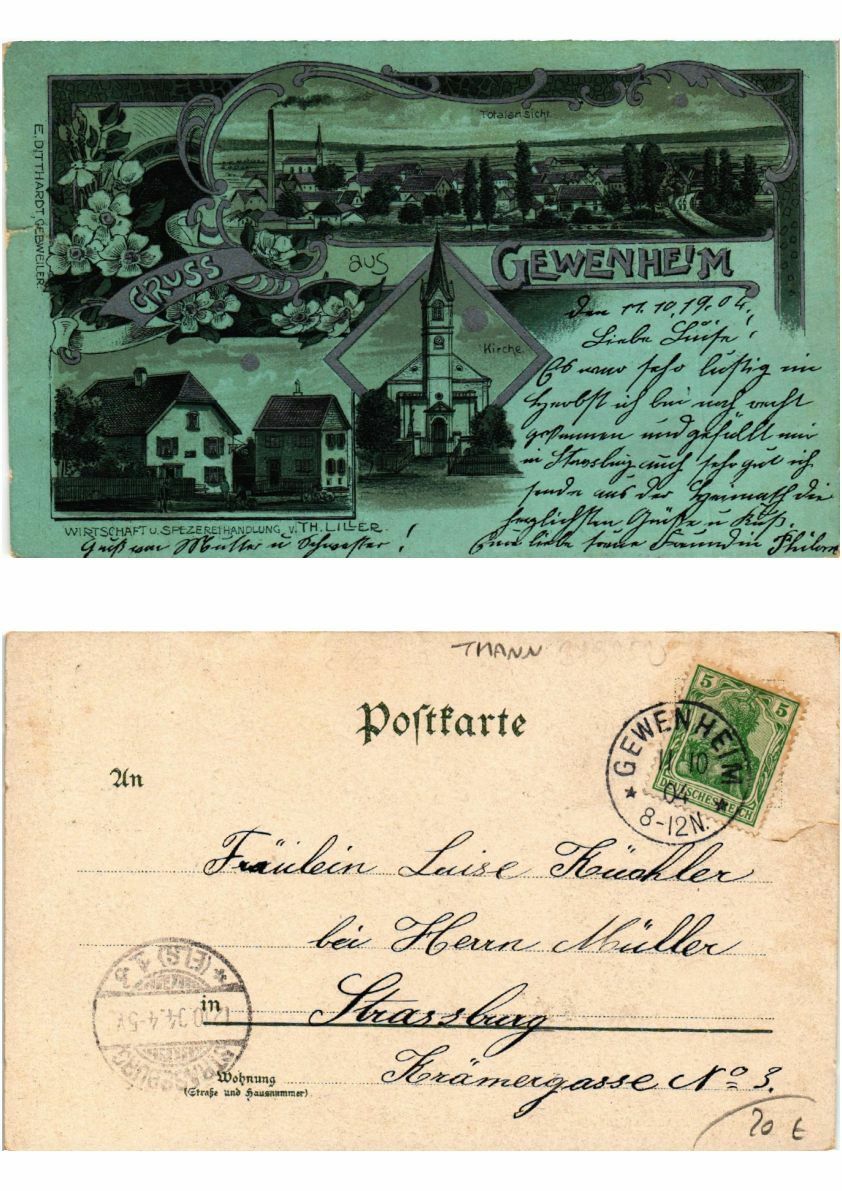 Totalansicht.
E. DITTHARDT, GEBWEILER.
GRUSS aus GEWENHEIM
den 11.10.1904.
Liebe Luise!
Es war sehr lustig im
Herbst ich bei noch recht
und gefällt mir
in auch sehr gut ich
sende aus der Heimath die
herzlichsten Grüße u Kuß.
Kirche.
WIRTSCHAFT U. SPEZEREIHANDLUNG V. TH. LILLER.
Gruß von Mutter u Schwester!
Eure liebe Freundin
THANN
Postkarte
5 5
DEUTSCHES REICH
GEWENHEIM
11 10
04
8-12N.
An
Fräulein Luise Küchler
bei Herrn Müller
in Strassburg
Krämergasse No 3.
Wohnung
(Straße und Hausnummer)
STRASSBURG
(ELS)
12.10.04. 4-5
20 €